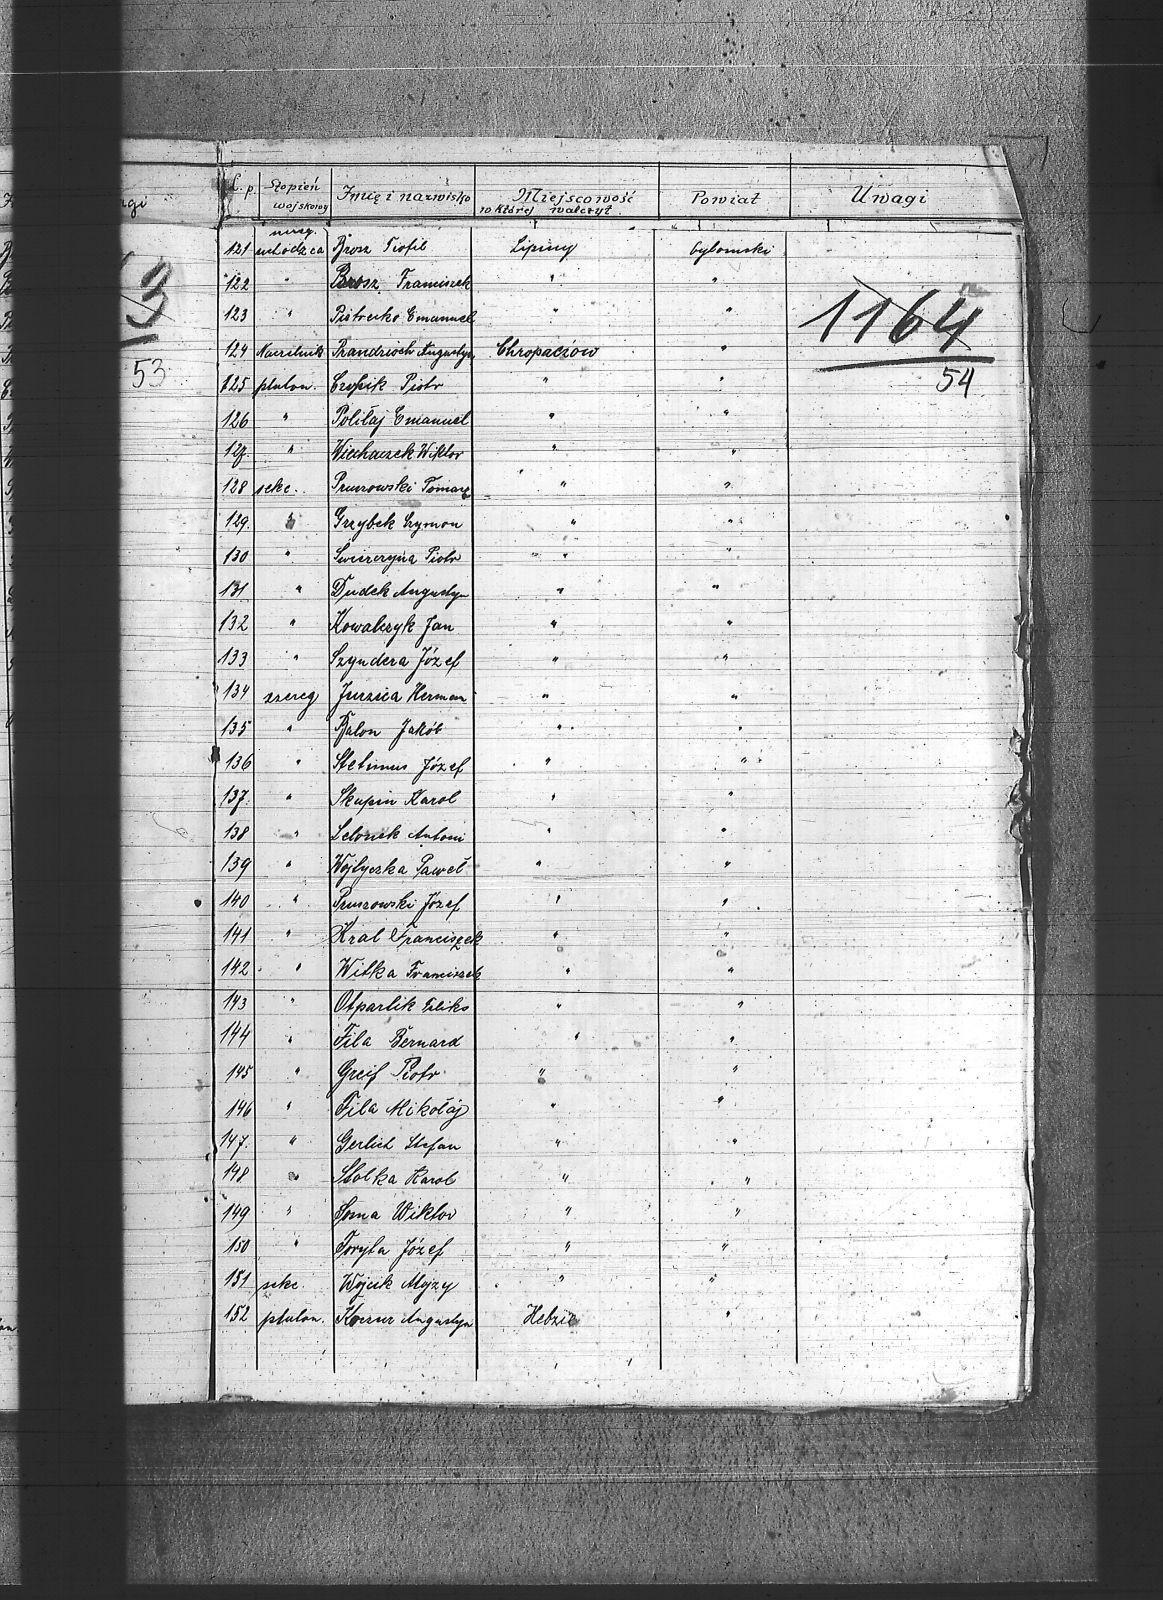 L. p. Stopień wojskowy Imię i nazwisko Miejscowość w której walczył Powiat Uwagi
121 Brosz Teofil Lipiny bytomski
122 " Brosz Franciszek " "
123 " Pietreczko Emanuel " "
1164
124 Naczelnik Prandzioch Augustyn Chropaczów "
53
54
125 pluton. Czopik Piotr " "
126 " Polilaj Emanuel " "
127. " Wiechaczek Wiktor " "
128 sekc. Pruszowski Tomasz " "
129. " Grzybek Szymon " "
130 " Swierczyna Piotr " "
131 " Dudek Augustyn " "
132 " Kowalczyk Jan " "
133 " Szyndera Józef " "
134 szereg Herman " "
135 " Balon Jakób " "
136 " Józef " "
137. " Skupin Karol " "
138 " Lelonek Antoni " "
139 " Wojtyczka Paweł " "
140 " Pruszowski Józef " "
141 " Kral Franciszek " "
142 " Witka Franciszek " "
143 " Otparlik Feliks " "
144 " Fila Bernard " "
145 " Greif Piotr " "
146 " Fila Mikołaj " "
147. " Gerlich Stefan " "
148 " Slotka Karol " "
149 " Soma Wiktor " "
150 " Foryta Józef " "
151 sekc Wójcik Alojzy " "
152 pluton. Augustyn Hebzie "